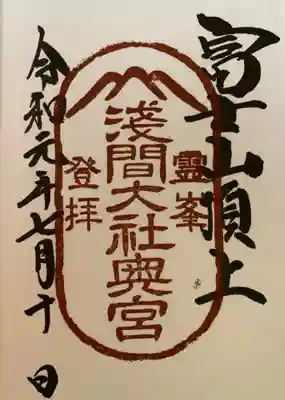 富士山頂上
霊峯
浅間大社奥宮
登拝
令和元年七月十日